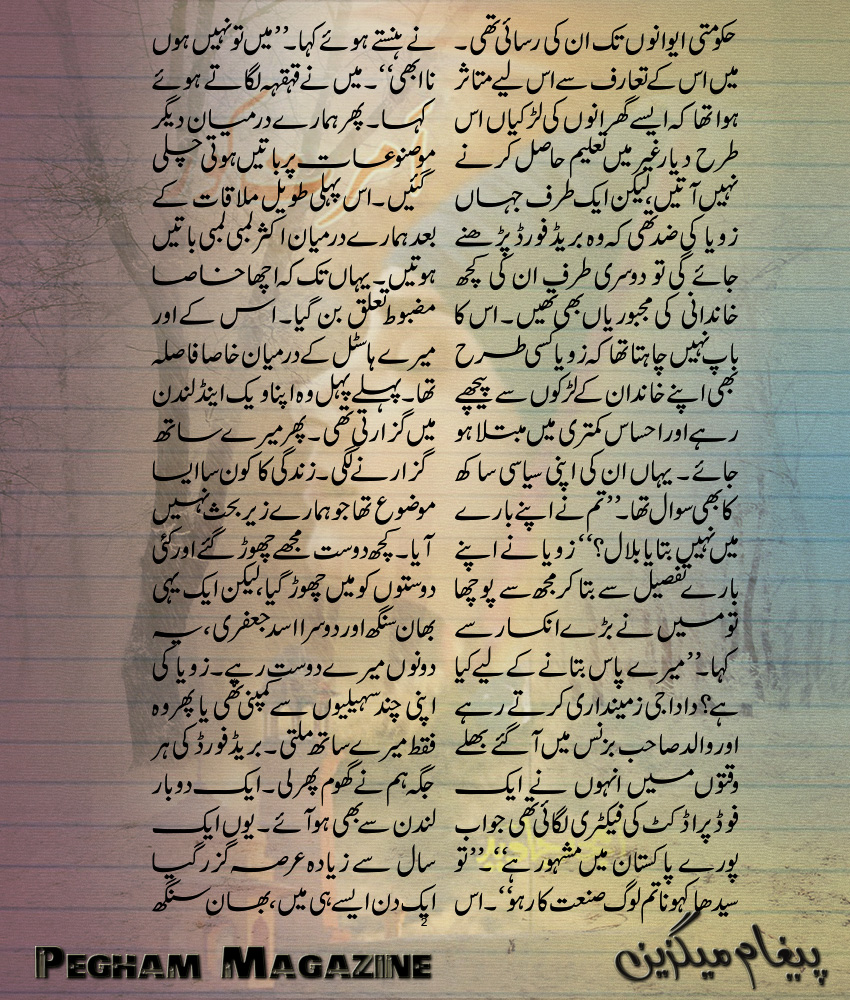 حکومتی ایوانوں تک ان کی رسائی تھی۔
میں اس کے تعارف سے اس لیے متاثر
ہوا تھا کہ ایسے گھرانوں کی لڑکیاں اس
طرح دیار غیر میں تعلیم حاصل کرنے
نہیں آتیں، لیکن ایک طرف جہاں
زویا کی ضد تھی کہ وہ بریڈ فورڈ پڑھنے
جائے گی تو دوسری طرف ان کی کچھ
خاندانی کی مجبوریاں بھی تھیں۔ اس کا
باپ نہیں چاہتا تھا کہ زویا کسی طرح
بھی اپنے خاندان کے لڑکوں سے پیچھے
رہے اور احساس کمتری میں مبتلا ہو
جائے۔ یہاں ان کی اپنی سیاسی ساکھ
کا بھی سوال تھا۔ ’’تم نے اپنے بارے
میں نہیں بتایا بلال؟‘‘ زویا نے اپنے
بارے تفصیل سے بتا کر مجھ سے پوچھا
تو میں نے بڑے انکسار سے
کہا۔ ’’میرے پاس بتانے کے لیے کیا
ہے؟ دادا جی زمینداری کرتے رہے
اور والد صاحب بزنس میں آگئے بھلے
وقتوں میں انہوں نے ایک
فوڈ پراڈکٹ کی فیکٹری لگائی تھی جواب
پورے پاکستان میں مشہور ہے‘‘۔ ’’تو
سیدھا کہونا تم لوگ صنعت کار ہو‘‘۔ اس
نے ہنستے ہوئے کہا۔ ’’میں تو نہیں ہوں
نا ابھی‘‘۔ میں نے قہقہہ لگاتے ہوئے
کہا۔ پھر ہمارے درمیان دیگر
موضوعات پر باتیں ہوتی چلی
گئیں۔ اس پہلی طویل ملاقات کے
بعد ہمارے درمیان اکثر لمبی لمبی باتیں
ہوتیں۔ یہاں تک کہ اچھا خاصا
مضبوط تعلق بن گیا۔ اس کے اور
میرے ہاسٹل کے درمیان خاصا فاصلہ
تھا۔ پہلے پہل وہ اپنا ویک اینڈ لندن
میں گزارتی تھی۔ پھر میرے ساتھ
گزارنے لگی۔ زندگی کا کون سا ایسا
موضوع تھا جو ہمارے زیر بحث نہیں
آیا۔ کچھ دوست مجھے چھوڑ گئے اور کئی
دوستوں کو میں چھوڑ گیا، لیکن ایک یہی
بھان سنگھ اور دوسرا اسد جعفری، یہ
دونوں میرے دوست رہے۔ زویا کی
اپنی چند سہیلیوں سے کمپنی تھی یا پھر وہ
فقط میرے ساتھ ملتی۔ بریڈ فورڈ کی ہر
جگہ ہم نے گھوم پھر لی۔ ایک دو بار
لندن سے بھی ہو آئے۔ یوں ایک
سال سے زیادہ عرصہ گزر گیا
ایک دن ایسے ہی میں، بھان سنگھ
2
PEGHAM MAGAZINE
پیغام میگزین